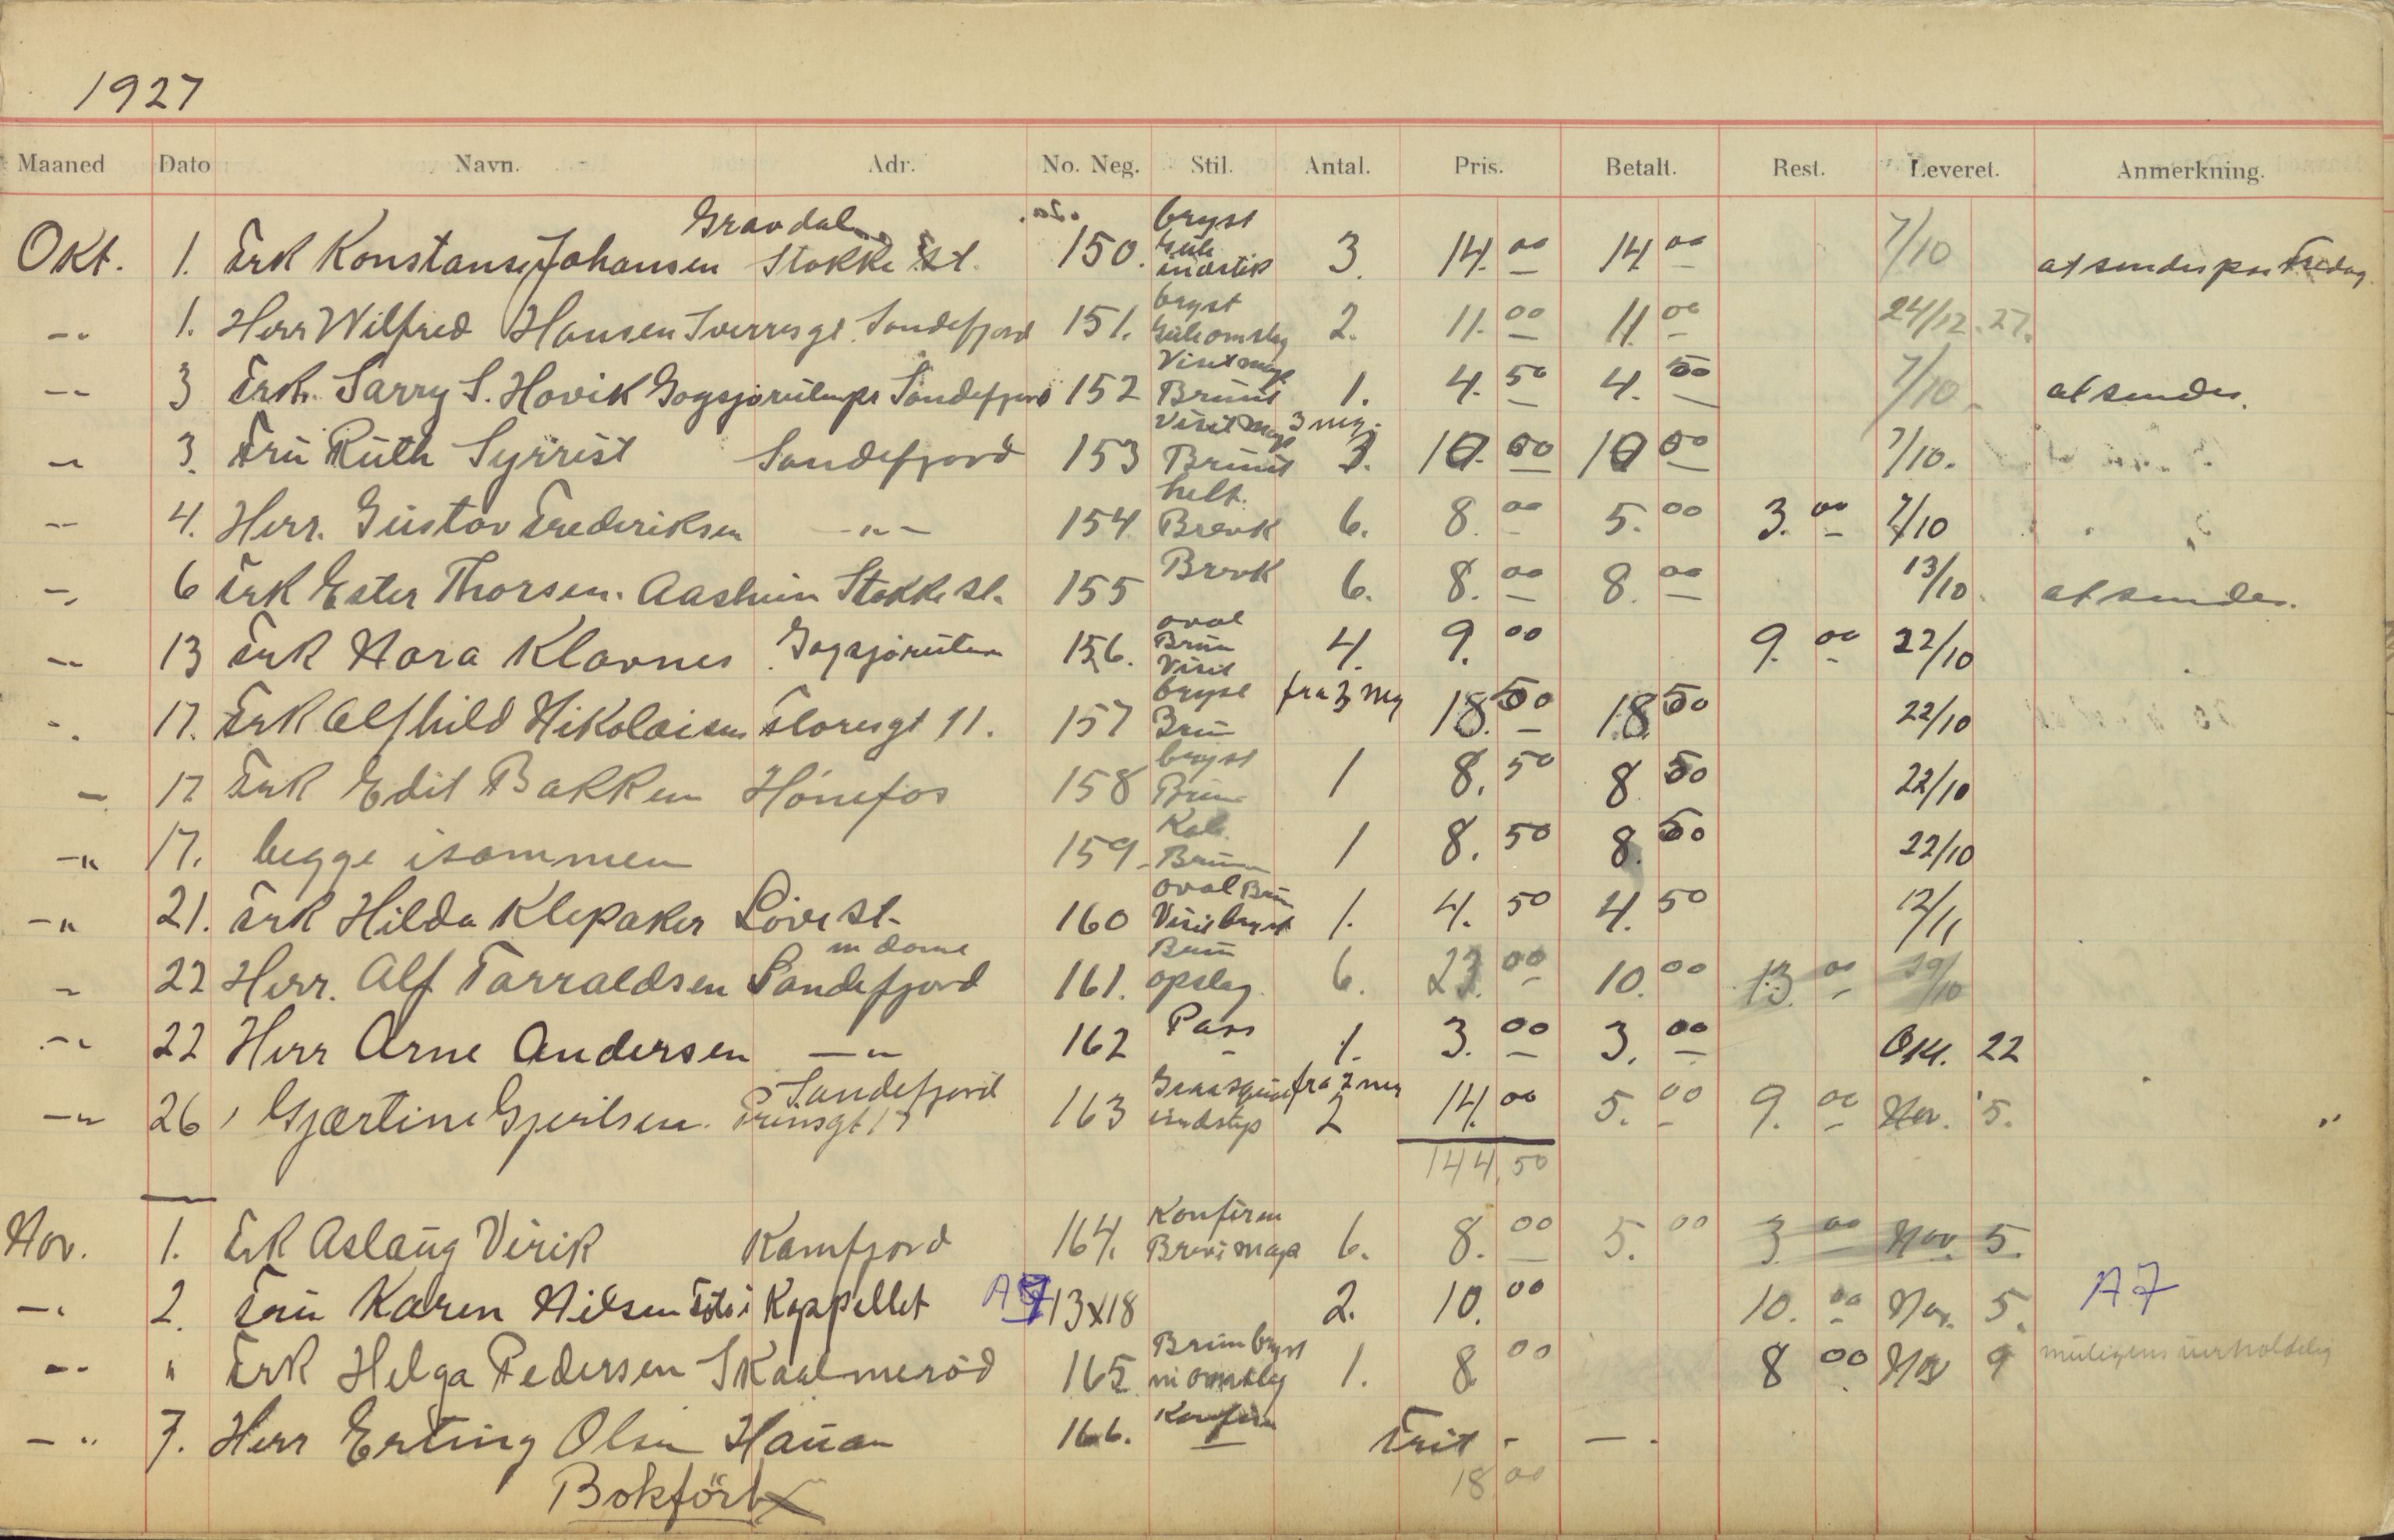 1927
Maaned Dato Navn. Adr. No. Neg. Stil. Antal. Pris. Betalt. Rest. Leveret. Anmerkning.
Gravdal bryst
Okt. 1. Frk Konstanse Johansen Stokke St. 150. 3. 14. 00 14 00 7/10 at sendes
bryst
-" 1. Herr Wilfred Hansen Sverresgt. Sandefjord 151. 2. 11. 00 11 00 24/12. 27.
-" 3 Frk. Sarry S. Hovik Sandefjord 152 Brunt 1. 4. 50 4. 50 7/10 at sendes.
3 neg.
-" 3. Fru Ruth Syrrist Sandefjord 153 Brunt 3. 10. 00 10 00 7/10.
helt.
-" 4. Herr. Gustav Frederiksen -"- 154 Brevk 6. 8. 00 5. 00 3. 00 7/10
-" 6 Frk Ester Thorsen. Stokke st. 155 Brevk 6. 8. 00 8. 00 13/10. at sendes.
oval
-" 13 Frk Nora Klavnes 156. Brun Visit 4. 9. 00 9. 00 22/10
bryst fra 3 neg
-" 17. Frk Alfhild Nikolaisen Floresgt 11. 157 Brun 18. 50 18 50 22/10
bryst
- 17 Frk Edit Bakken Hönefos 158 Brun 1 8. 50 8 50 22/10
Kab.
-" 17. begge isammen 159 Brun 1 8. 50 8. 50 22/10
oval Brun
-" 21. Frk Hilda Klepaker Löve st. 160 Visit bryst 1. 4. 50 4. 50 12/11
m dame Brun
-" 22 Herr. Alf Tarraldsen Sandefjord 161. opslag. 6. 23. 00 10. 00 13. 00 29/10
-" 22 Herr Arne Andersen -" 162 Pass 1. 3. 00 3. 00 Okt. 22
Sandefjord fra 2 neg
-" 26 Gjærtine Prinsgt 17 163 2 14. 00 5. 00 9. 00 Nov. 5.
144,50
Konfirm
Nov. 1. Frk Aslaug Virik Kamfjord 164. 6. 8. 00 5. 00 3 00 Nov. 5.
-" 2. Fru Karen Nilsen Foto i Kappellet A7 13x18 2. 10. 00 10. 00 Nov. 5. A7
Brun bryst
-" " Frk Helga Pedersen Skaalmeröd 165 m omslag 1. 8 00 8 00 Nov 9 muligens uerholdelig
-" 7. Herr Erling Olsen Hauan 166. Konfirm Frit - -.
18,00
Bokført